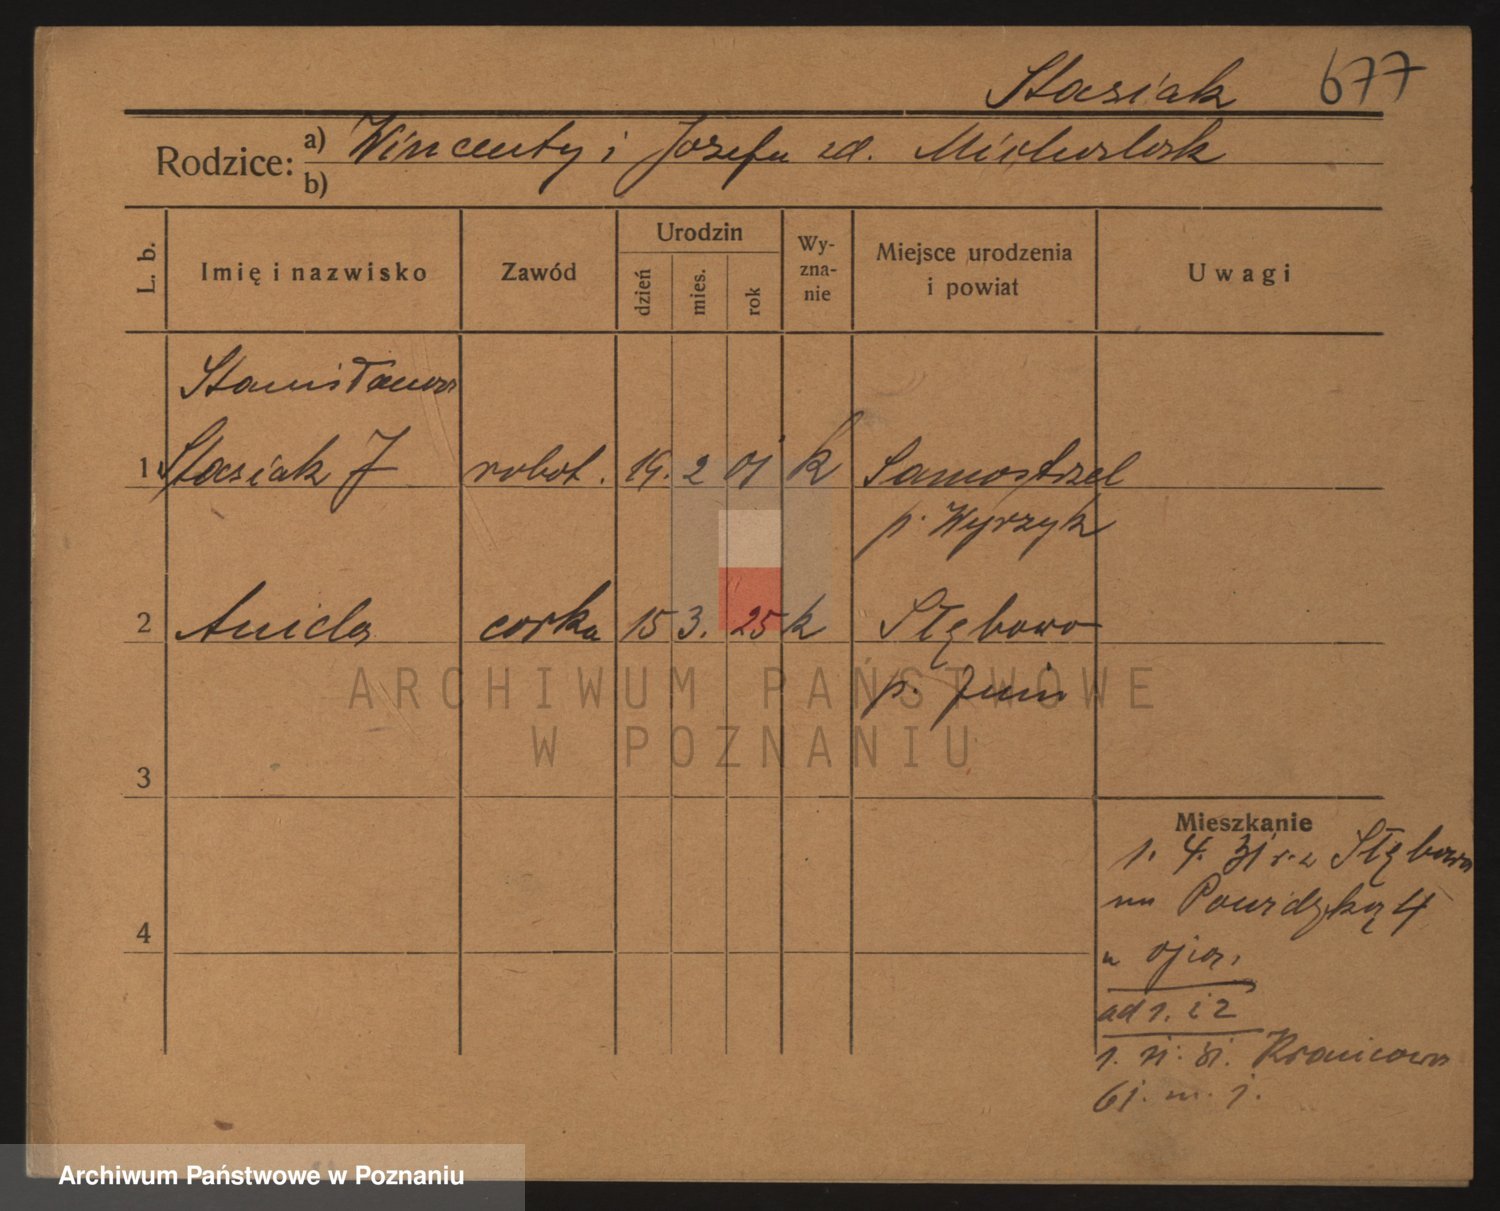 Stasiak 677
Rodzice: a) Wincenty i Józefa zd. Michalak
b)
L. b. Imię i nazwisko Zawód Urodzin dzień mies. rok Wyzna-nie Miejsce urodzenia i powiat Uwagi
Stanisława
1 Stasiak J robot. 19. 2 01 k Samostrzel
p. Wyrzysk
2 Aniela corka 15 3. 25 k Stębowo
p. Żnin
ARCHIWUM PAŃSTWOWE
W POZNANIU
3
4
Mieszkanie
1. 4. 31 r. z Stębowa
na Powidzką 4
u ojca,
ad 1. i 2
Kranicowa
61. m. 1.
Archiwum Państwowe w Poznaniu